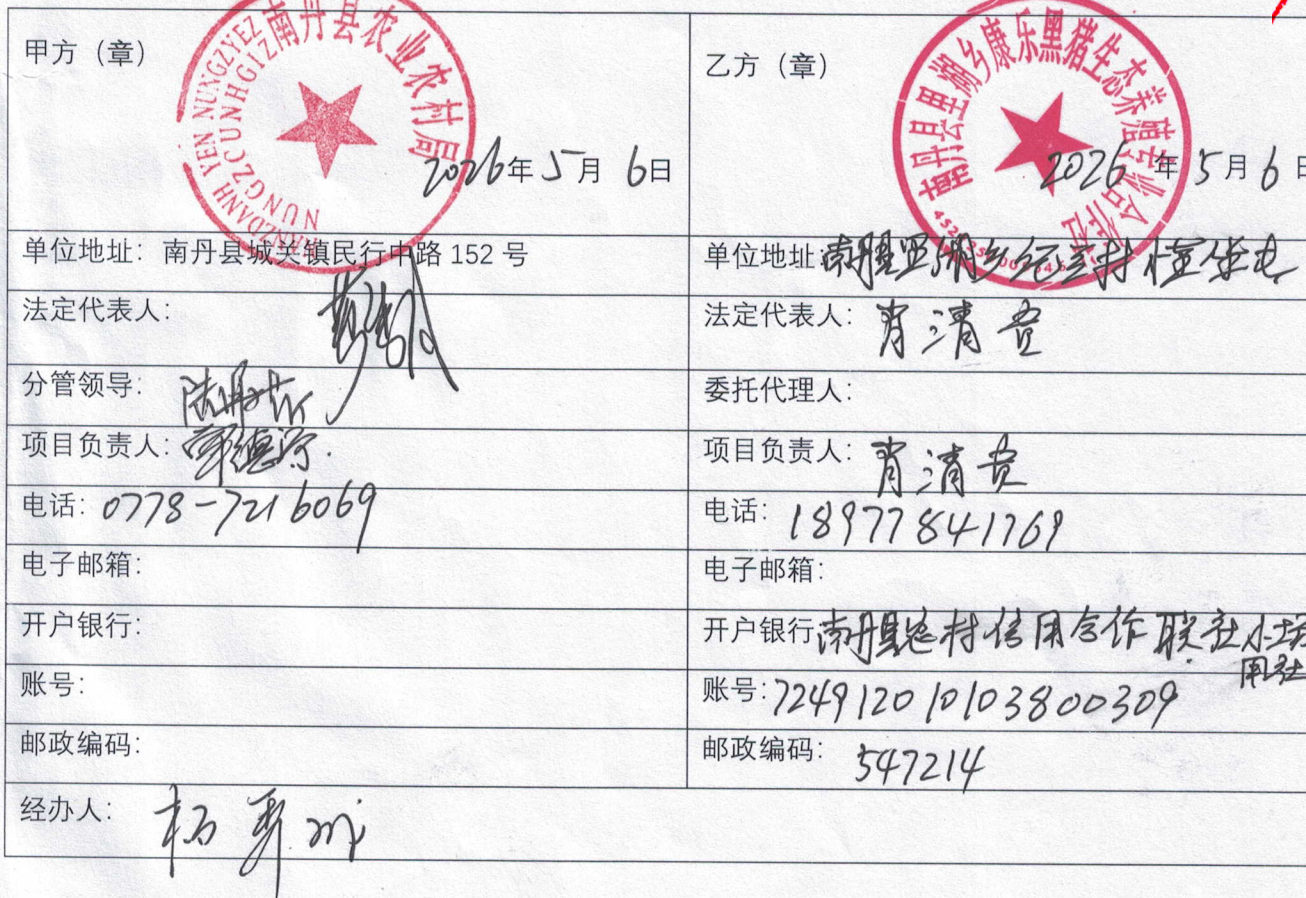 南丹县农业农村局
NANZDANH YEN NUNGZYEZ
NUNGZCUNHGIZ
甲方（章）
2026年5月6日
南丹县里湖乡康乐黑猪生态养殖专业合作社
乙方（章）
2026年5月6日
单位地址：南丹县城关镇民行中路152号
单位地址：南丹县里湖乡
法定代表人：
法定代表人：肖清贵
分管领导：
委托代理人：
项目负责人：
项目负责人：肖清贵
电话：0778-7216069
电话：18977841769
电子邮箱：
电子邮箱：
开户银行：
开户银行：南丹县农村信用合作联社小场
用社
账号：
账号：724912010103800309
邮政编码：
邮政编码：547214
经办人：